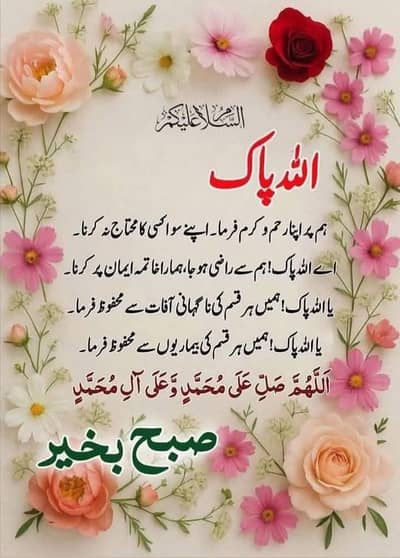 السلام علیکم
اللہ پاک
ہم پر اپنا رحم و کرم فرما۔ اپنے سوا کسی کا محتاج نہ کرنا۔
اے اللہ پاک! ہم سے راضی ہو جا، ہمارا خاتمہ ایمان پر کرنا۔
یا اللہ پاک! ہمیں ہر قسم کی ناگہانی آفات سے محفوظ فرما۔
یا اللہ پاک! ہمیں ہر قسم کی بیماریوں سے محفوظ فرما۔
اَللّٰهُمَّ صَلِّ عَلٰى مُحَمَّدٍ وَّعَلٰى آلِ مُحَمَّدٍ
صبح بخیر